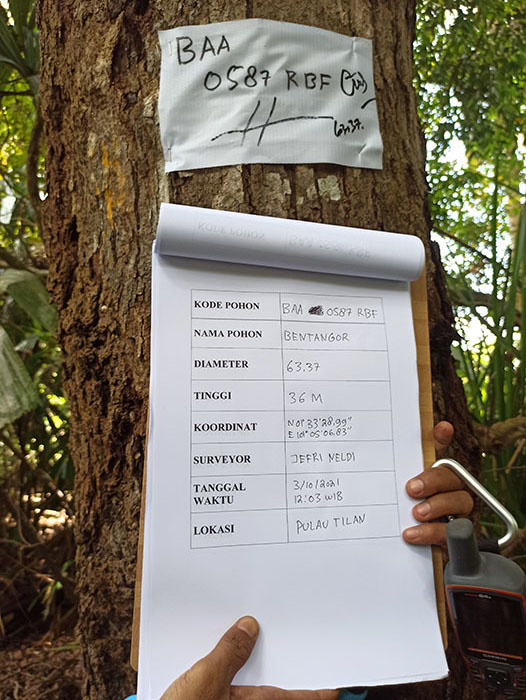 BAA
0587 RBF
63.37.
KODE POHON BAA 0587 RBF
NAMA POHON BENTANGOR
DIAMETER 63.37
TINGGI 36 M
KOORDINAT N 01° 33' 28.99"
E 101° 05' 06.83"
SURVEYOR JEFRI NELDI
TANGGAL 3/10/2021
WAKTU 12:03 WIB
LOKASI PULAU TILAN